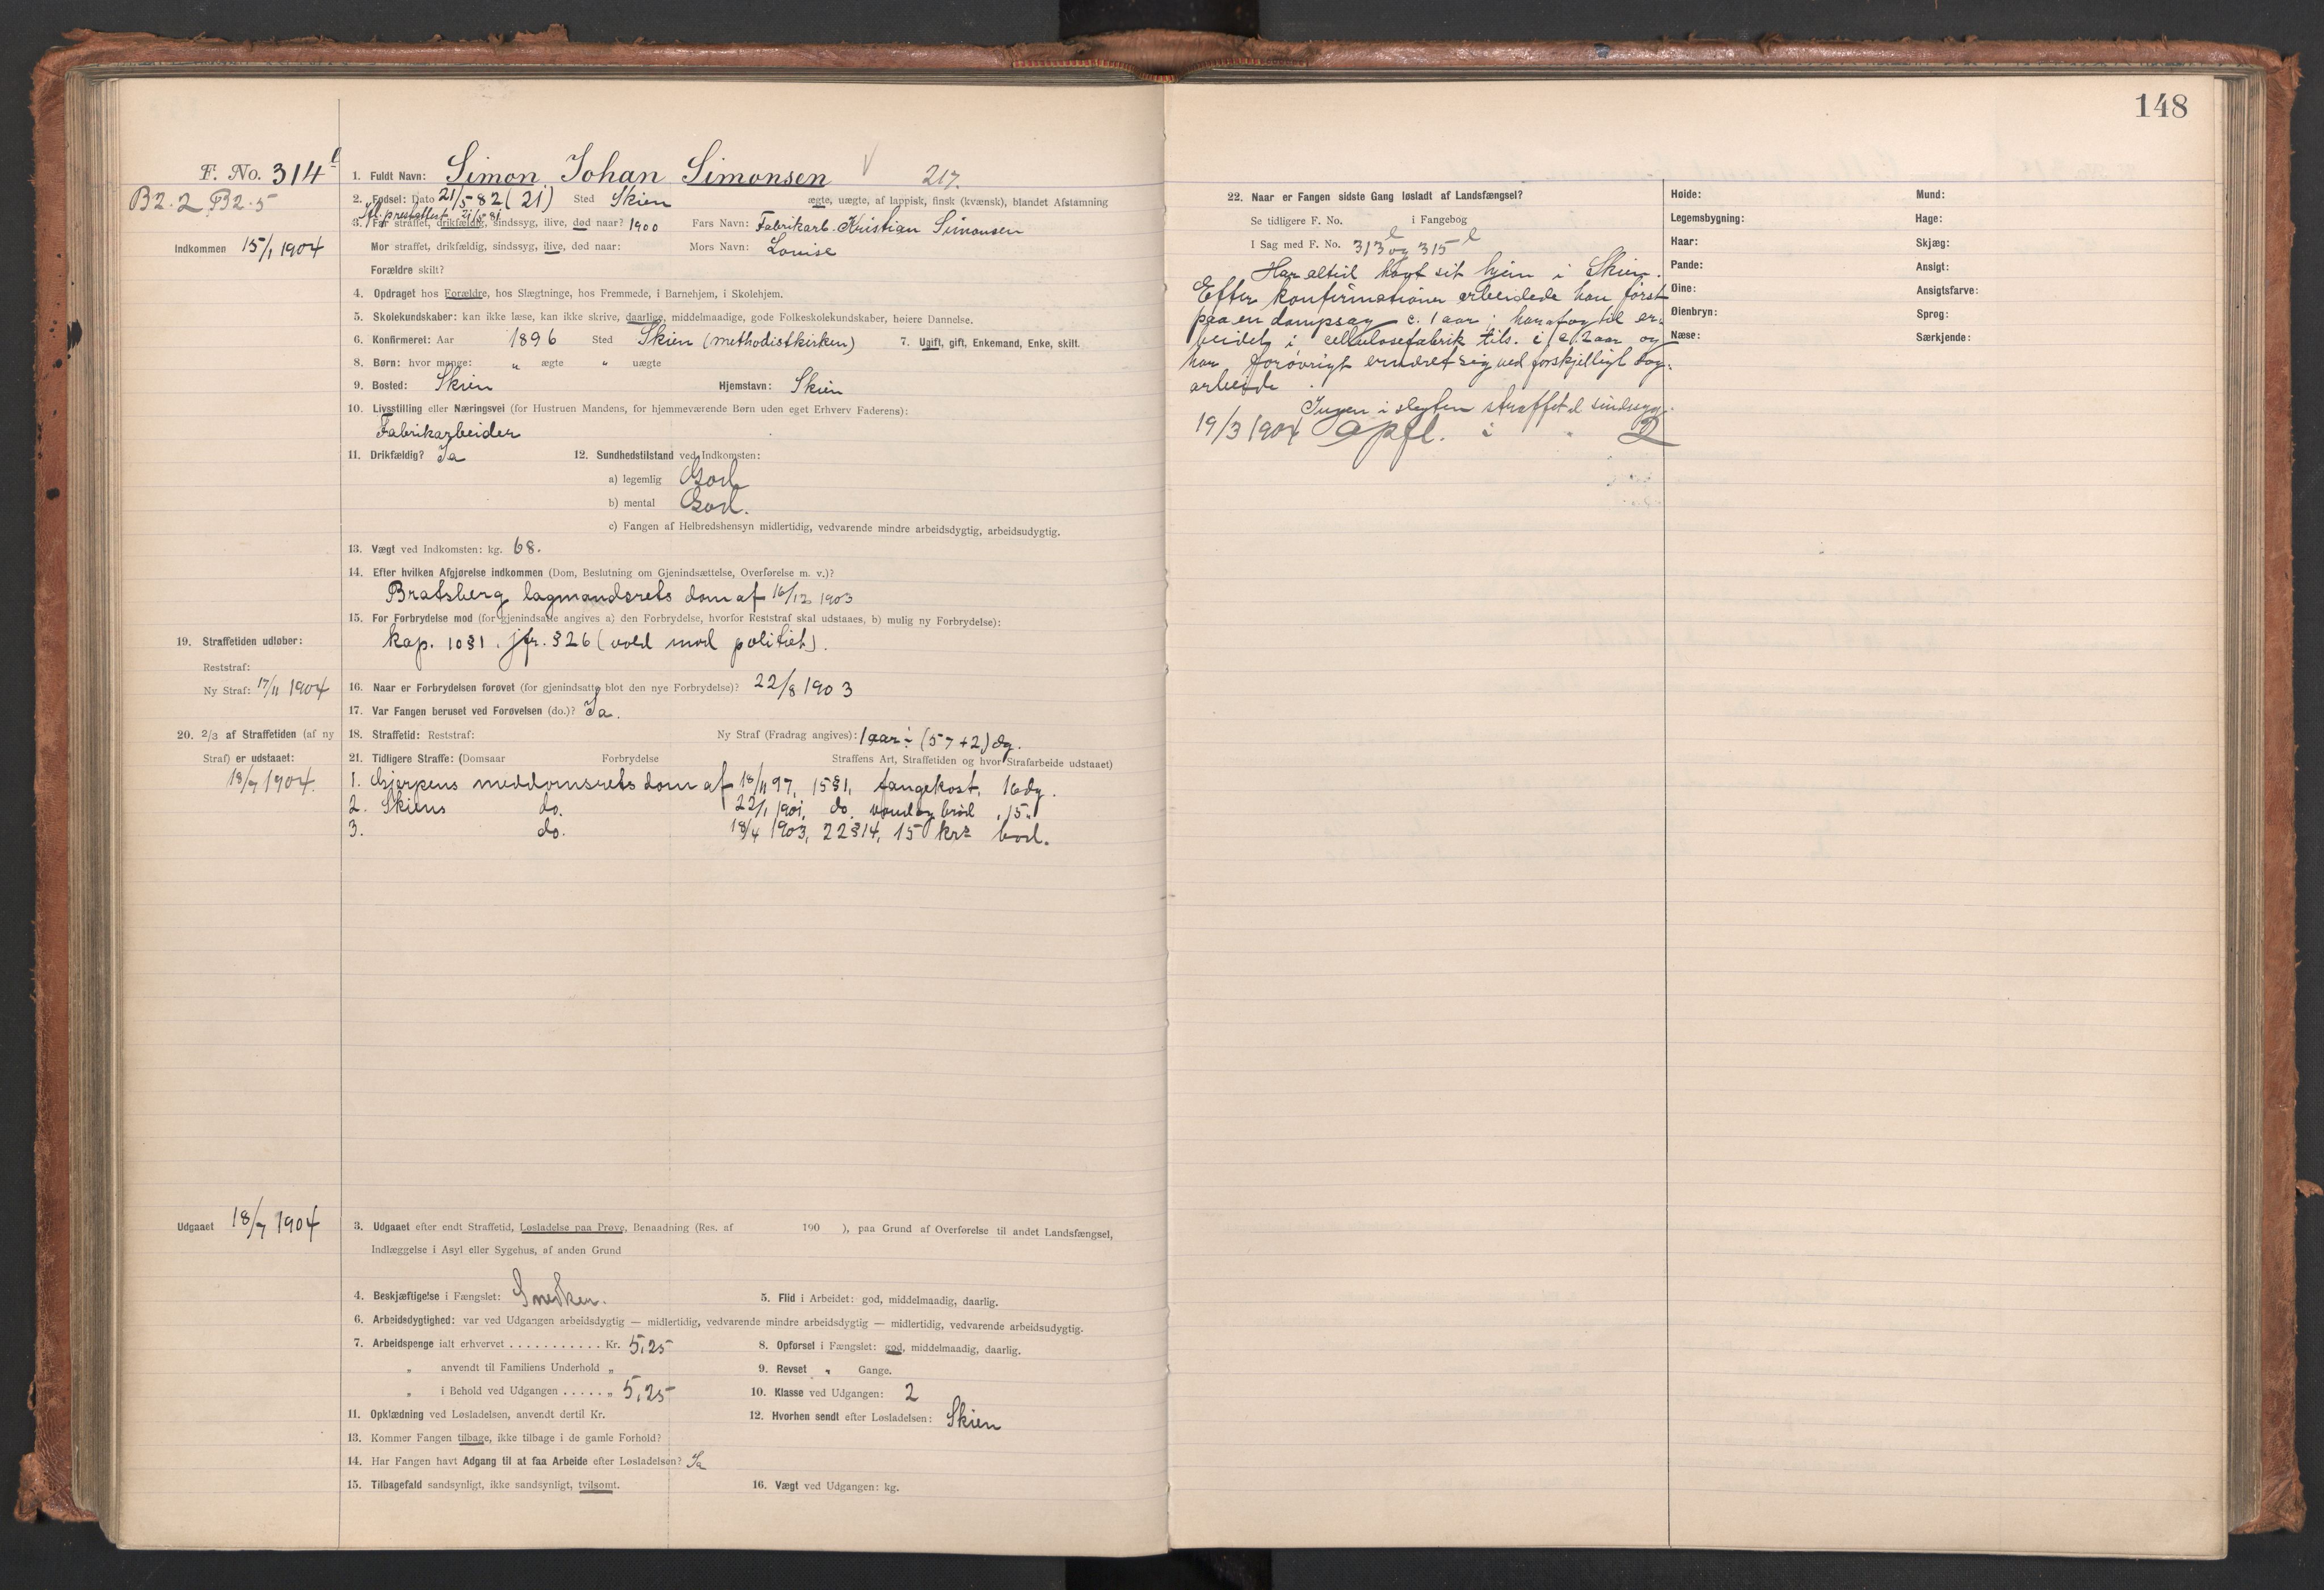 148
F. No. 314 l
1. Fuldt Navn: Simon Johan Simonsen V 217.
B2.2 B2.5
2. Fødsel: Dato 21/5 82 (21) Sted Skien ægte, uægte, af lappisk, finsk (kvænsk), blandet Afstamning
Fl. prestattest 21/5 81
3. Far straffet, drikfældig, sindssyg, ilive, død naar? 1900 Fars Navn: Fabrikarb. Kristian Simonsen
Indkommen 15/1 1904
Mor straffet, drikfældig, sindssyg, ilive, død naar: Mors Navn: Louise
Forældre skilt?
4. Opdraget hos Forældre, hos Slægtninge, hos Fremmede, i Barnehjem, i Skolehjem.
5. Skolekundskaber: kan ikke læse, kan ikke skrive, daarlige, middelmaadige, gode Folkeskolekundskaber, høiere Dannelse.
6. Konfirmeret: Aar 1896 Sted Skien (methodistkirken) 7. Ugift, gift, Enkemand, Enke, skilt.
8. Børn: hvor mange: " ægte " uægte
9. Bosted: Skien Hjemstavn: Skien
10. Livsstilling eller Næringsvei (for Hustruen Mandens, for hjemmeværende Børn uden eget Erhverv Faderens):
Fabrikarbeider
11. Drikfældig? Ja 12. Sundhedstilstand ved Indkomsten:
a) legemlig God
b) mental God.
c) Fangen af Helbredshensyn midlertidig, vedvarende mindre arbeidsdygtig, arbeidsudygtig.
13. Vægt ved Indkomsten: kg. 68.
14. Efter hvilken Afgjørelse indkommen (Dom, Beslutning om Gjenindsættelse, Overførelse m. v.)?
Bratsberg lagmandsrets dom af 16/12 1903
15. For Forbrydelse mod (for gjenindsatte angives a) den Forbrydelse, hvorfor Reststraf skal udstaaes, b) mulig ny Forbrydelse):
kap. 10 § 1. jfr. § 26 (vold mod politiet).
19. Straffetiden udløber:
Reststraf:
Ny Straf: 17/11 1904
16. Naar er Forbrydelsen forøvet (for gjenindsatte blot den nye Forbrydelse)? 22/8 1903
17. Var Fangen beruset ved Forøvelsen (do.)? Ja.
20. 2/3 af Straffetiden (af ny
Straf) er udstaaet:
18/7 1904.
18. Straffetid: Reststraf: Ny Straf (Fradrag angives): 1 aar ÷ (57+2) dg.
21. Tidligere Straffe: (Domsaar Forbrydelse Straffens Art, Straffetiden og hvor Strafarbeide udstaaet)
1. Gjerpens meddomsrets dom af 18/11 97, 15 § 1, fangekost, 16 dg.
2. Skiens do. 22/1 1901, do. vand og brød, 15 "
3. do. 18/4 1903, 22 § 14, 15 krs bod.
Udgaaet 18/7 1904
3. Udgaaet efter endt Straffetid, Løsladelse paa Prøve, Benaadning (Res. af 190 ), paa Grund af Overførelse til andet Landsfængsel,
Indlæggelse i Asyl eller Sygehus, af anden Grund
4. Beskjæftigelse i Fængslet: Snedker. 5. Flid i Arbeidet: god, middelmaadig, daarlig.
6. Arbeidsdygtighed: var ved Udgangen arbeidsdygtig — midlertidig, vedvarende mindre arbeidsdygtig — midlertidig, vedvarende arbeidsudygtig.
7. Arbeidspenge ialt erhvervet . . . . . . . . . . . Kr. 5,25 8. Opførsel i Fængslet: god, middelmaadig, daarlig.
" anvendt til Familiens Underhold " 9. Revset " Gange.
" i Behold ved Udgangen . . . . . " 5,25 10. Klasse ved Udgangen: 2
11. Opklædning ved Løsladelsen, anvendt dertil Kr. 12. Hvorhen sendt efter Løsladelsen: Skien
13. Kommer Fangen tilbage, ikke tilbage i de gamle Forhold?
14. Har Fangen havt Adgang til at faa Arbeide efter Løsladelsen? Ja
15. Tilbagefald sandsynligt, ikke sandsynligt, tvilsomt. 16. Vægt ved Udgangen: kg.
22. Naar er Fangen sidste Gang løsladt af Landsfængsel?
Se tidligere F. No. i Fangebog
I Sag med F. No. 313 l og 315 l
Har altid havt sit hjem i Skien.
Efter konfirmationen arbeidede han først
paa en dampsag c. 1 aar; har af og til ar-
beidet i cellulosefabrik tils. i c. 2 aar og
har forøvrigt ernæret sig ved forskjelligt dag-
arbeide
Ingen i slegten straffet el sindssyg.
19/3 1904 Opfl. i " 2
Høide: Mund:
Legemsbygning: Hage:
Haar: Skjæg:
Pande: Ansigt:
Øine: Ansigtsfarve:
Øienbryn: Sprog:
Næse: Særkjende: